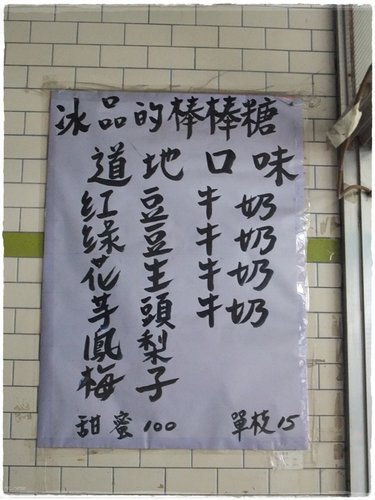 冰品的棒棒糖
道地口味
紅豆牛奶
綠豆牛奶
花生牛奶
芋頭牛奶
鳳梨
梅子
甜蜜100
單枝15